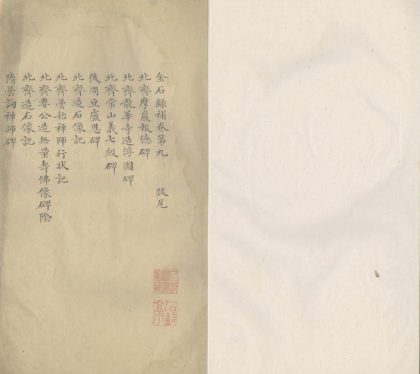 金石錄補卷第九 跋尾
北齊摩崖報德碑
北齊龍華寺造浮圖碑
北齊常山義七級碑
後周豆盧恩碑
北齊造石像記
北齊僧詥禪師行狀記
北齊婁公造無量壽佛像碑陰
北齊造石像記
隋曇詢禪師碑